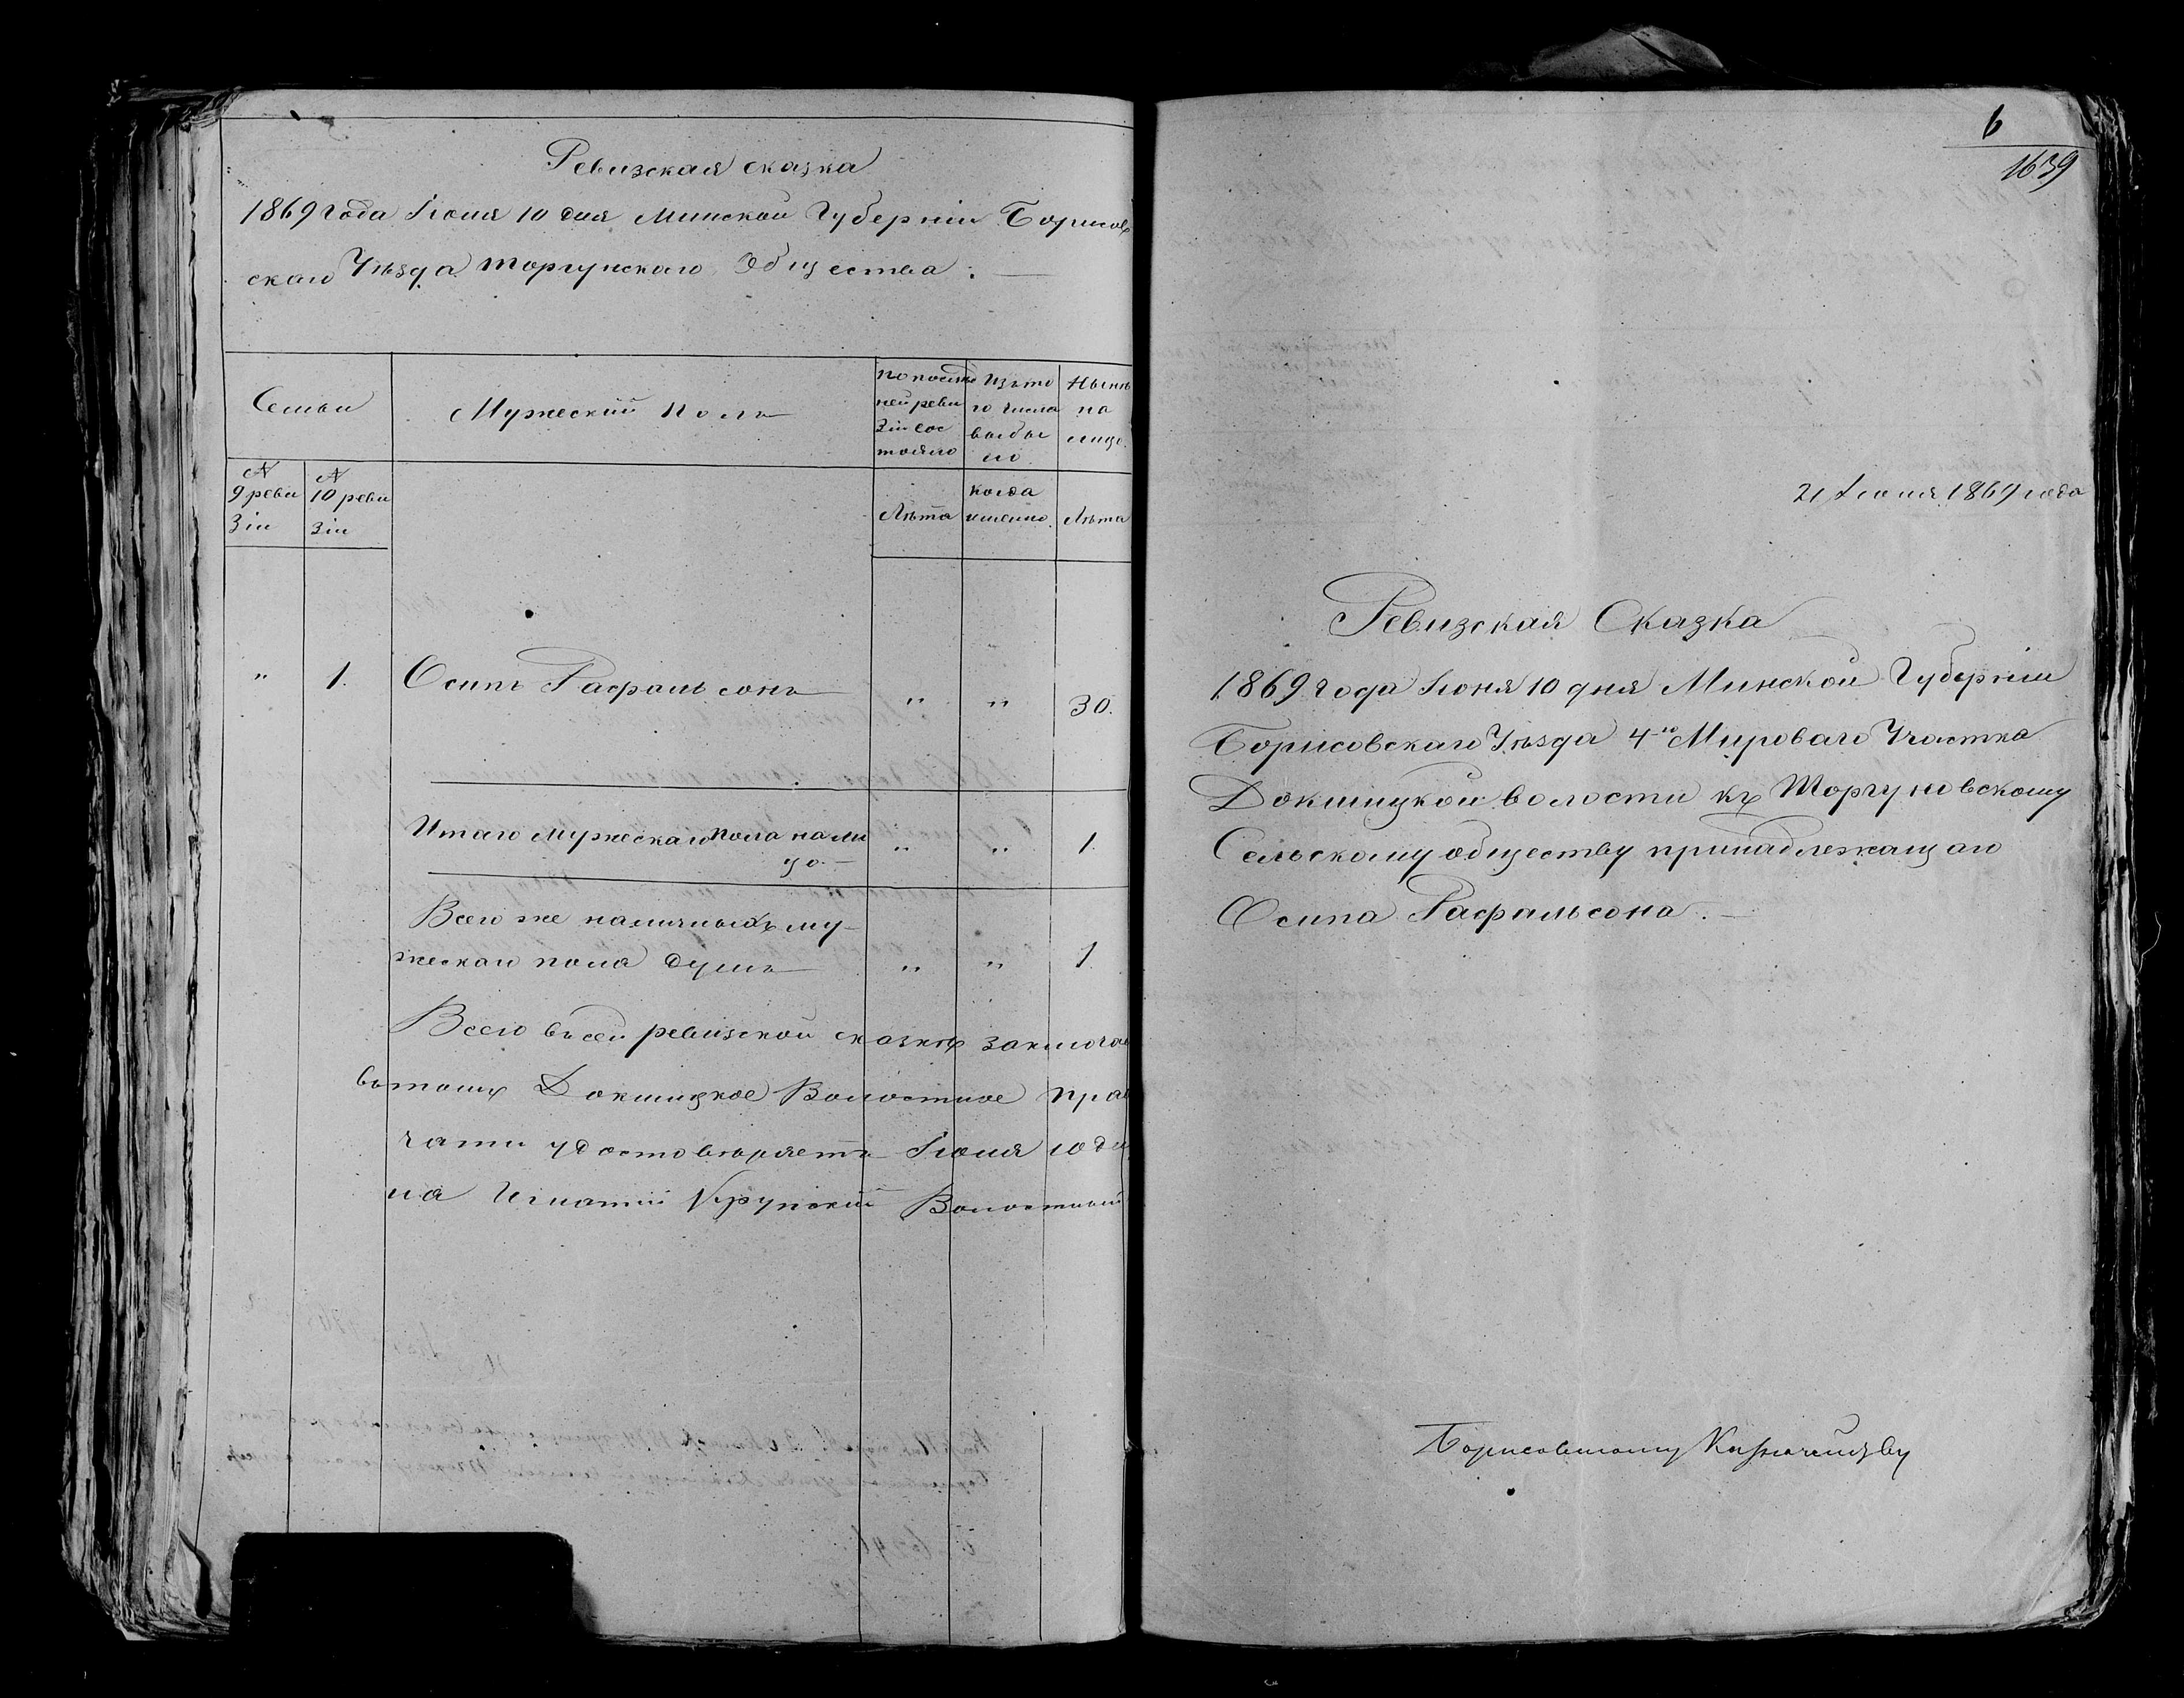 Ревизская сказка
1869 года Іюня 10 дня Минской Губерніи Борисов
скаго Уѣзда Торгунскаго Общества. —
Семьи
Мужескій полъ
По послѣд
ней реви
зіи сос
тояло
Изъ то
го числа
выбы
ло
Нынѣ
на
лицо.
№
9 реви
зіи
№
10 реви
зіи
Лѣта
когда
именно.
Лѣта
" 1. Осипъ Рафальсонъ " " 30.
Итого мужескаго пола на ли
цо. — " " 1.
Всего же наличныхъ му-
жескаго пола душъ " " 1.
Всего въ сей ревизской сказкѣ заключае
Докшицкое Волостное прав
чати удостовѣряетъ Іюня 10 дн
на Игнатій Крупскій Волостный
6
1639
21 Іюня 1869 года
Ревизская Сказка
1869 года Іюня 10 дня Минской Губерніи
Борисовскаго Уѣзда 4-го Мироваго Участка
Докшицкой волости къ Торгуновскому
Сельскому обществу принадлежащаго
Осипа Рафальсона. —
Борисовскому Казначейству